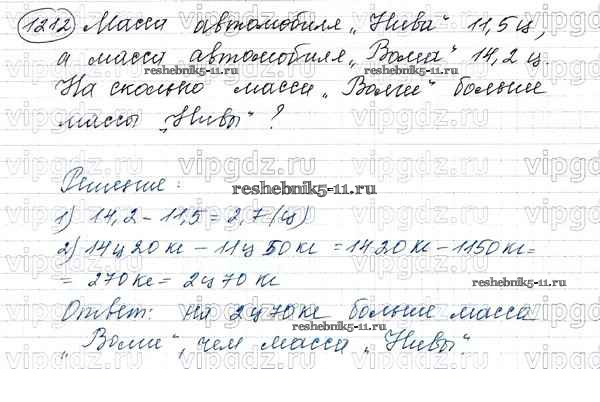 1212 Масса автомобиля „Нива" 11,5 ц,
а масса автомобиля „Волга" 14,2 ц.
reshebnik5-11.ru
На сколько масса „Волги" больше
массы „Нивы"?
Решение:
reshebnik5-11.ru
1) 14,2 - 11,5 = 2,7 (ц)
2) 14 ц 20 кг - 11 ц 50 кг = 1420 кг - 1150 кг =
= 270 кг = 2 ц 70 кг
reshebnik5-11.ru
Ответ: на 2 ц 70 кг больше масса
reshebnik5-11.ru
„Волги", чем масса „Нивы".
vipgdz.ru